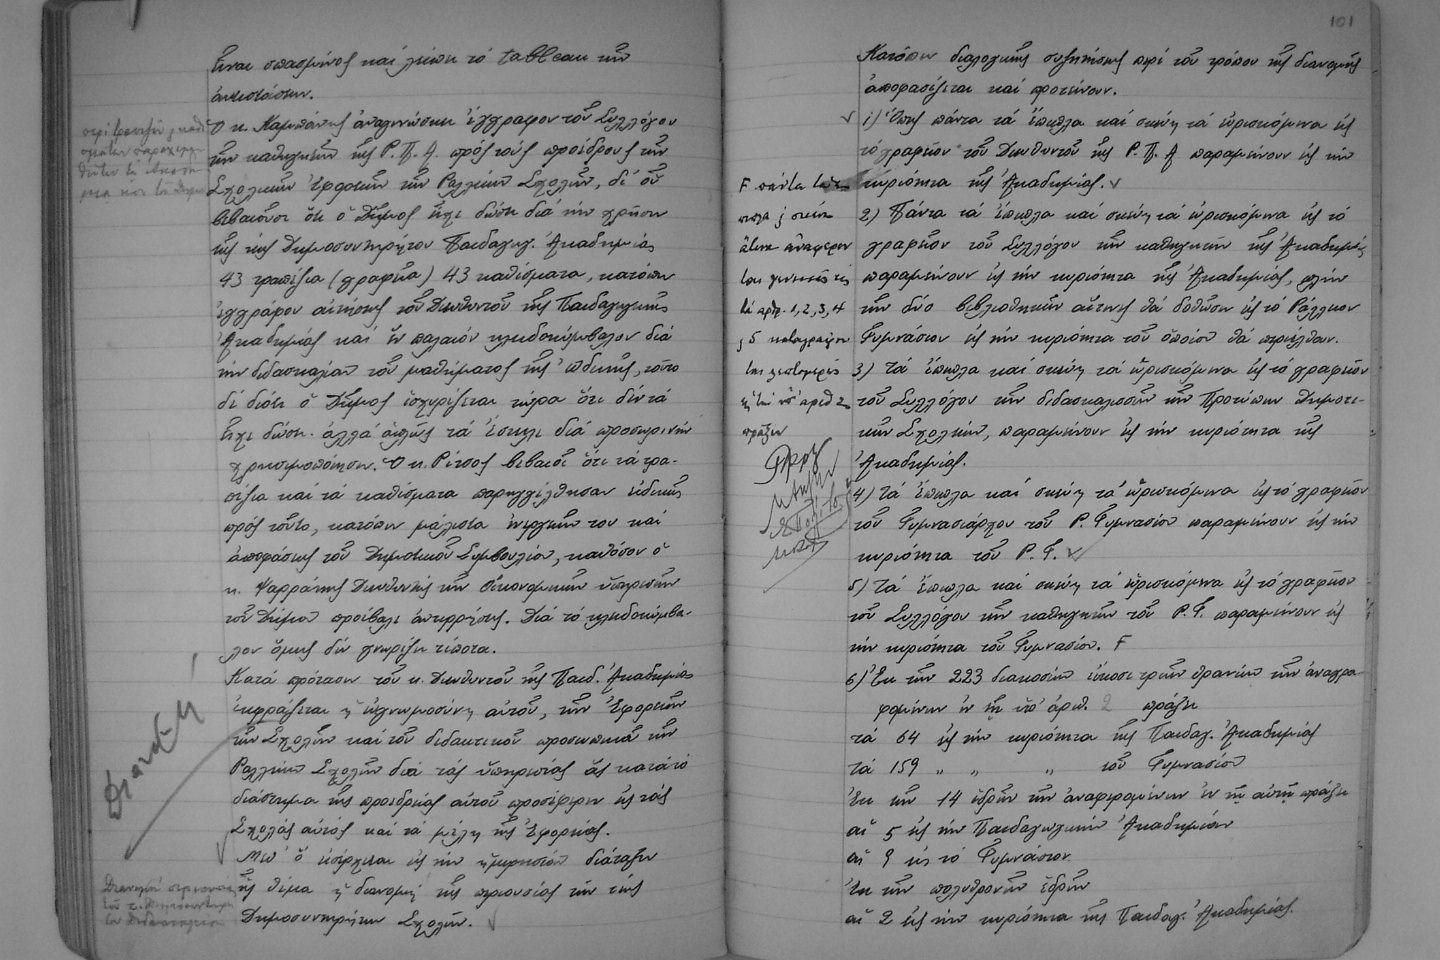 εἶναι σπασμένος καί λείπει τό tableau τῶν
ἀντιστάσεων.
Ὁ κ. Καμπάνης ἀναγινώσκει ἔγγραφον τοῦ Συλλόγου
τῶν καθηγητῶν τῆς Ρ. Π. Α. πρός τούς προέδρους τῶν
Σχολικῶν Ἐφορειῶν τῶν Ραλλείων Σχολῶν, δι' οὗ
βεβαιοῦσι ὅτι ὁ Δῆμος ἔχει δώσει διά τήν χρῆσιν
τῆς τέως Δημοσυντηρήτου Παιδαγωγ. Ἀκαδημίας
43 τραπέζια (γραφεῖα) 43 καθίσματα, κατόπιν
ἐγγράφου αἰτήσεως τοῦ Διευθυντοῦ τῆς Παιδαγωγικῆς
Ἀκαδημίας καί ἕν παλαιόν κλειδοκύμβαλον διά
τήν διδασκαλίαν τοῦ μαθήματος τῆς Ὠδικῆς, τοῦτο
δέ διότι ὁ Δῆμος ἰσχυρίζεται τώρα ὅτι δέν τά
ἔχει δώσει ἀλλά ἁπλῶς τά ἔστειλε διά προσωρινήν
χρησιμοποίησιν. Ὁ κ. Ρίτσος βεβαιοῖ ὅτι τά τρα-
πέζια καί τά καθίσματα παρηγγέλθησαν εἰδικῶς
πρός τοῦτο, κατόπιν μάλιστα ἐνεργειῶν του καί
ἀποφάσεως τοῦ Δημοτικοῦ Συμβουλίου, καθόσον ὁ
κ. Ψαρράκης Διευθυντής τῶν Οἰκονομικῶν ὑπηρεσιῶν
τοῦ Δήμου προέβαλε ἀντιρρήσεις. Διά τό κλειδοκύμβα-
λον ὅμως δέν γνωρίζει τίποτα.
Κατά πρότασιν τοῦ κ. Διευθυντοῦ τῆς Παιδ. Ἀκαδημίας
ἐκφράζεται ἡ εὐγνωμοσύνη αὐτοῦ, τῶν Ἐφορειῶν
τῶν Σχολῶν καί τοῦ διδακτικοῦ προσωπικοῦ τῶν
Ραλλείων Σχολῶν διά τάς ὑπηρεσίας ἅς κατά τό
διάστημα τῆς προεδρείας αὐτοῦ προσέφερεν εἰς τάς
Σχολάς αὐτάς καί τά μέλη τῆς Ἐφορείας.
Μεθ' ὅ εἰσέρχεται εἰς τήν ἡμερησίαν διάταξιν
ὡς θέμα ἡ διανομή τῆς περιουσίας τῶν τέως
Δημοσυντηρήτων Σχολῶν.
101
Κατόπιν διαλογικῆς συζητήσεως περί τοῦ τρόπου τῆς διανομῆς
ἀποφασίζεται καί προτείνουν.
1) Ὅπως πάντα τά ἔπιπλα καί σκεύη τά εὑρισκόμενα εἰς
τό γραφεῖον τοῦ Διευθυντοῦ τῆς Ρ. Π. Α παραμείνουν εἰς τήν
κυριότητα τῆς Ἀκαδημίας.
2) Πάντα τά ἔπιπλα καί σκεύη τά εὑρισκόμενα εἰς τό
γραφεῖον τοῦ Συλλόγου τῶν καθηγητῶν τῆς Ἀκαδημίας
παραμείνουν εἰς τήν κυριότητα τῆς Ἀκαδημίας, πλήν
τῶν δύο βιβλιοθηκῶν αἵτινες θά δοθῶσιν εἰς τό Ράλλειον
Γυμνάσιον εἰς τήν κυριότητα τοῦ ὁποίου θά περιέλθουν.
3) Τά ἔπιπλα καί σκεύη τά εὑρισκόμενα εἰς τό γραφεῖον
τοῦ Συλλόγου τῶν διδασκαλισσῶν τῶν Προτύπων Δημοτι-
κῶν Σχολείων, παραμείνουν εἰς τήν κυριότητα τῆς
Ἀκαδημίας.
4) Τά ἔπιπλα καί σκεύη τά εὑρισκόμενα εἰς τό γραφεῖον
τοῦ Γυμνασιάρχου τοῦ Ρ. Γυμνασίου παραμείνουν εἰς τήν
κυριότητα τοῦ Ρ. Γ.
5) Τά ἔπιπλα καί σκεύη τά εὑρισκόμενα εἰς τό γραφεῖον
τοῦ Συλλόγου τῶν καθηγητῶν τοῦ Ρ. Γ. παραμείνουν εἰς
τήν κυριότητα τοῦ Γυμνασίου. F
6) Ἐκ τῶν 223 διακοσίων εἴκοσι τριῶν θρανίων τῶν ἀναγρα-
φομένων ἐν τῇ ὑπ' ἀριθ. 2 πράξει
τά 64 εἰς τήν κυριότητα τῆς Παιδαγ. Ἀκαδημίας
τά 159 " " " τοῦ Γυμνασίου
Ἐκ τῶν 14 ἑδρῶν τῶν ἀναφερομένων ἐν τῇ αὐτῇ πράξει
αἱ 5 εἰς τήν Παιδαγωγικήν Ἀκαδημίαν
αἱ 9 εἰς τό Γυμνάσιον
Ἐκ τῶν πολυθρονῶν ἑδρῶν
αἱ 2 εἰς τήν κυριότητα τῆς Παιδαγ. Ἀκαδημίας.
F πάντα τά
ἔπιπλα ἤ σκεύη
ἅτινα ἀναφέρον
ται γενικῶς εἰς
τά αρθ. 1, 2, 3, 4
ἤ 5 καταγράφον
ται λεπτομερῶς
εἰς τήν ὑπ' ἀριθ 2
πράξιν